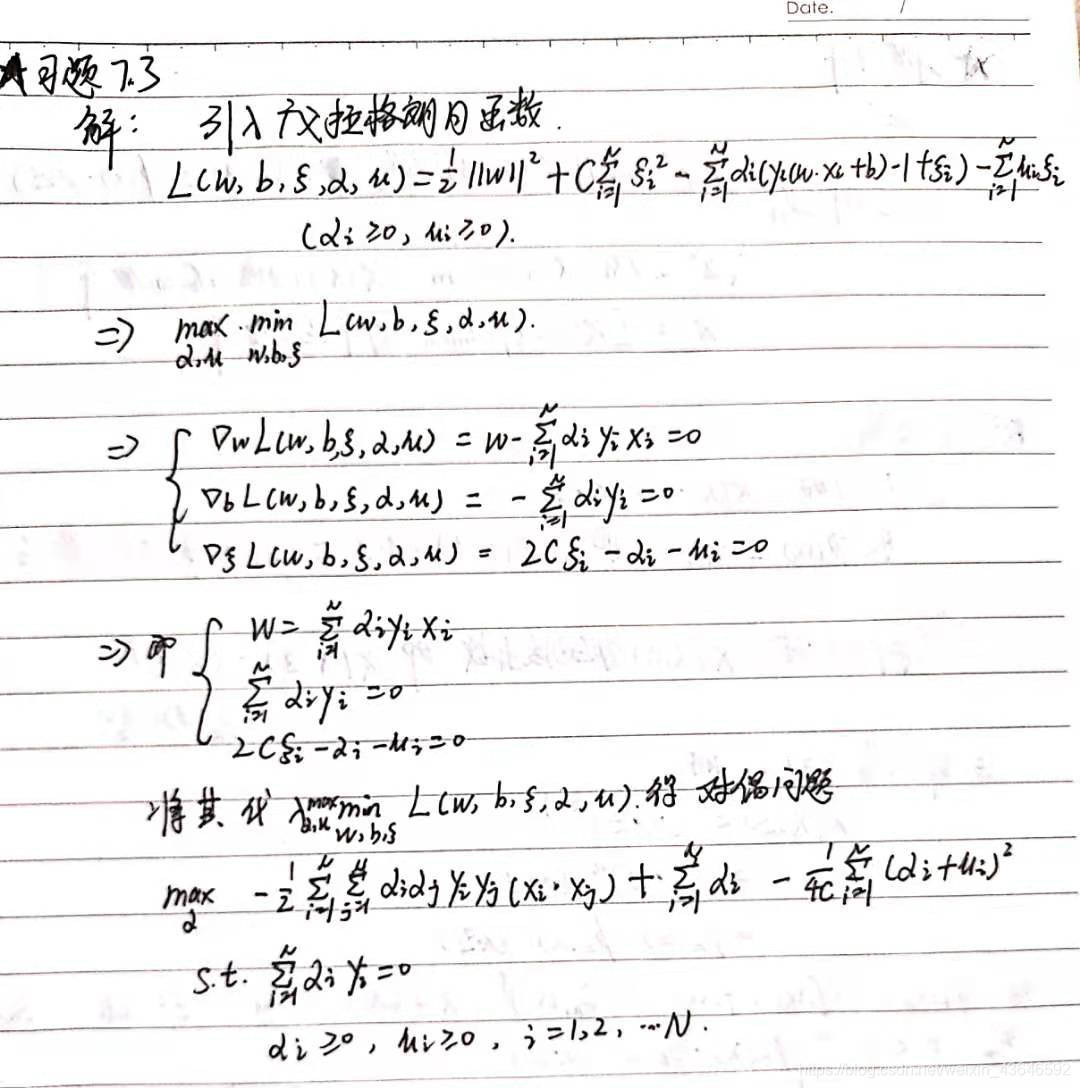 Date. /
习题7.3
解: 引入广义拉格朗日函数.
L(w, b, ξ, α, μ) = 1/2 ||w||² + C∑_{i=1}^{N} ξ_i² - ∑_{i=1}^{N} α_i(y_i(w·x_i+b)-1+ξ_i) - ∑_{i=1}^{N} μ_iξ_i
(α_i ≥0, μ_i ≥0).
⇒ max_{α,μ} min_{w,b,ξ} L(w,b,ξ,α,μ).
⇒ { ∇_w L(w, b, ξ, α, μ) = w - ∑_{i=1}^{N} α_i y_i x_i = 0
∇_b L(w, b, ξ, α, μ) = - ∑_{i=1}^{N} α_i y_i = 0
∇_ξ L(w, b, ξ, α, μ) = 2Cξ_i - α_i - μ_i = 0
⇒ 即 { w = ∑_{i=1}^{N} α_i y_i x_i
∑_{i=1}^{N} α_i y_i = 0
2Cξ_i - α_i - μ_i = 0
将其代入 max_{α,μ} min_{w,b,ξ} L(w, b, ξ, α, μ). 得 对偶问题
max_α -1/2 ∑_{i=1}^{N} ∑_{j=1}^{N} α_iα_j y_i y_j (x_i · x_j) + ∑_{i=1}^{N} α_i - 1/4C ∑_{i=1}^{N} (α_i+μ_i)²
s.t. ∑_{i=1}^{N} α_i y_i = 0
α_i ≥0, μ_i ≥0, i=1,2,…N.
https://blog.csdn.net/weixin_43646592